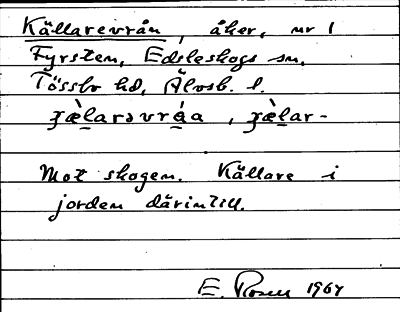 Källarevrån, åker, nr 1
Fyrsten, Edsleskogs sn,
Tössbo hd, Älvsb. l.
Mot skogen. Källare i
jorden därintill.
E. Rosen 1967